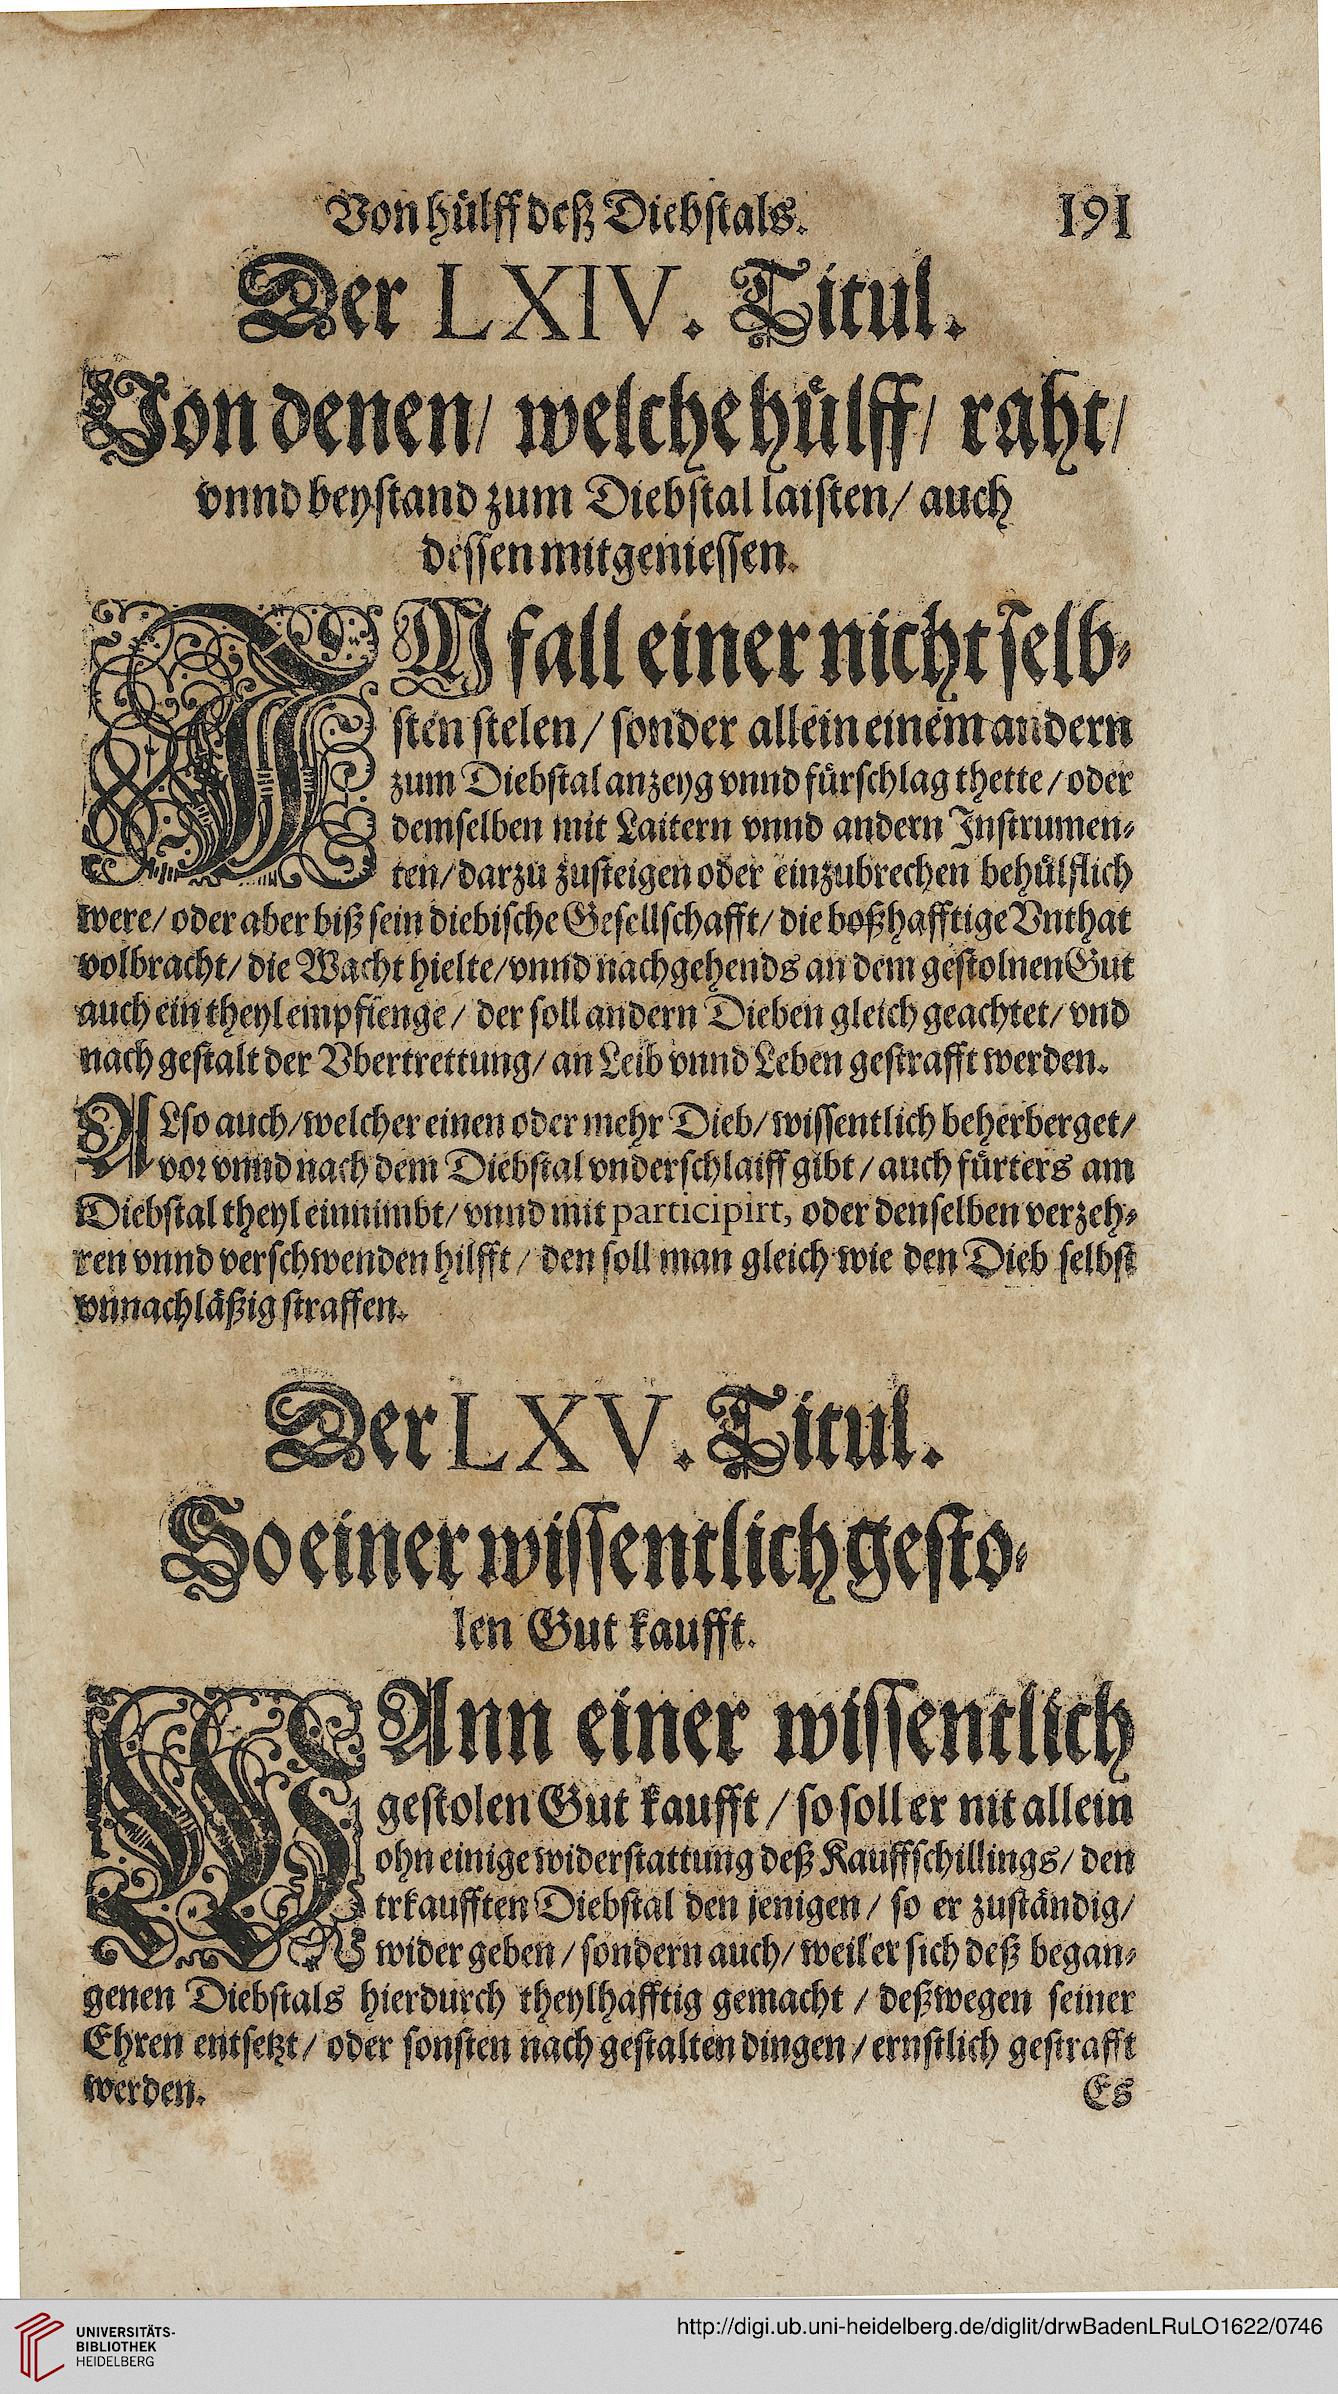 Von hülff deß Diebstals. 191
Der LXIV. Titul.
Von denen/ welche hülff/ raht/
vnnd beystand zum Diebstal laisten/ auch
dessen mitgeniessen.
IM fall einer nicht selb-
sten stelen/ sonder allein einem andern
zum Diebstal anzeyg vnnd fürschlag thette/ oder
demselben mit Laitern vnnd andern Instrumen-
ten/ darzu zusteigen oder einzubrechen behülflich
were/ oder aber biß sein diebische Gesellschafft/ die boßhafftige Vnthat
volbracht/ die Wacht hielte/ vnnd nachgehends an dem gestolnen Gut
auch ein theyl empfienge/ der soll andern Dieben gleich geachtet/ vnd
nach gestalt der Vbertrettung/ an Leib vnnd Leben gestrafft werden.
ALso auch/ welcher einen oder mehr Dieb/ wissentlich beherberget/
vor vnnd nach dem Diebstal vnderschlaiff gibt/ auch fürters am
Diebstal theyl einnimbt/ vnnd mit participirt, oder denselben verzeh-
ren vnnd verschwenden hilfft/ den soll man gleich wie den Dieb selbst
vnnachläßig straffen.
Der LXV. Titul.
So einer wissentlich gesto-
len Gut kaufft.
WAnn einer wissentlich
gestolen Gut kaufft/ so soll er nit allein
ohn einige widerstattung deß Kauffschillings/ den
erkaufften Diebstal den jenigen/ so er zuständig/
wider geben/ sondern auch/ weil er sich deß began-
genen Diebstals hierdurch theylhafftig gemacht/ deßwegen seiner
Ehren entsetzt/ oder sonsten nach gestalten dingen/ ernstlich gestrafft
werden. Es
UNIVERSITÄTS-
BIBLIOTHEK
HEIDELBERG
http://digi.ub.uni-heidelberg.de/diglit/drwBadenLRuLO1622/0746